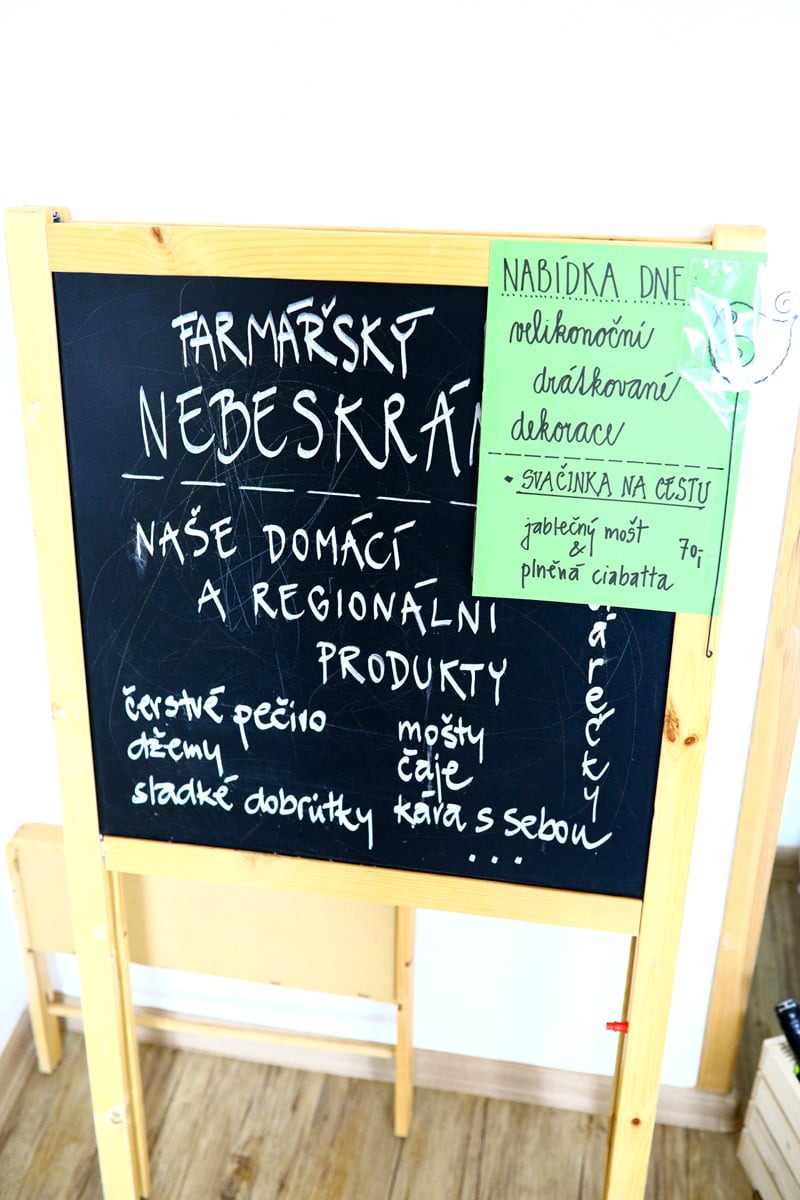 FARMÁŘSKÝ
NEBESKRÁM
NAŠE DOMÁCÍ
A REGIONÁLNÍ
PRODUKTY
čerstvé pečivo
džemy
sladké dobrůtky
mošty
čaje
káva s sebou
...
dárečky
NABÍDKA DNE
velikonoční
drátkované
dekorace
• SVAČINKA NA CESTU
jablečný mošt
&
plněná ciabatta
70,-